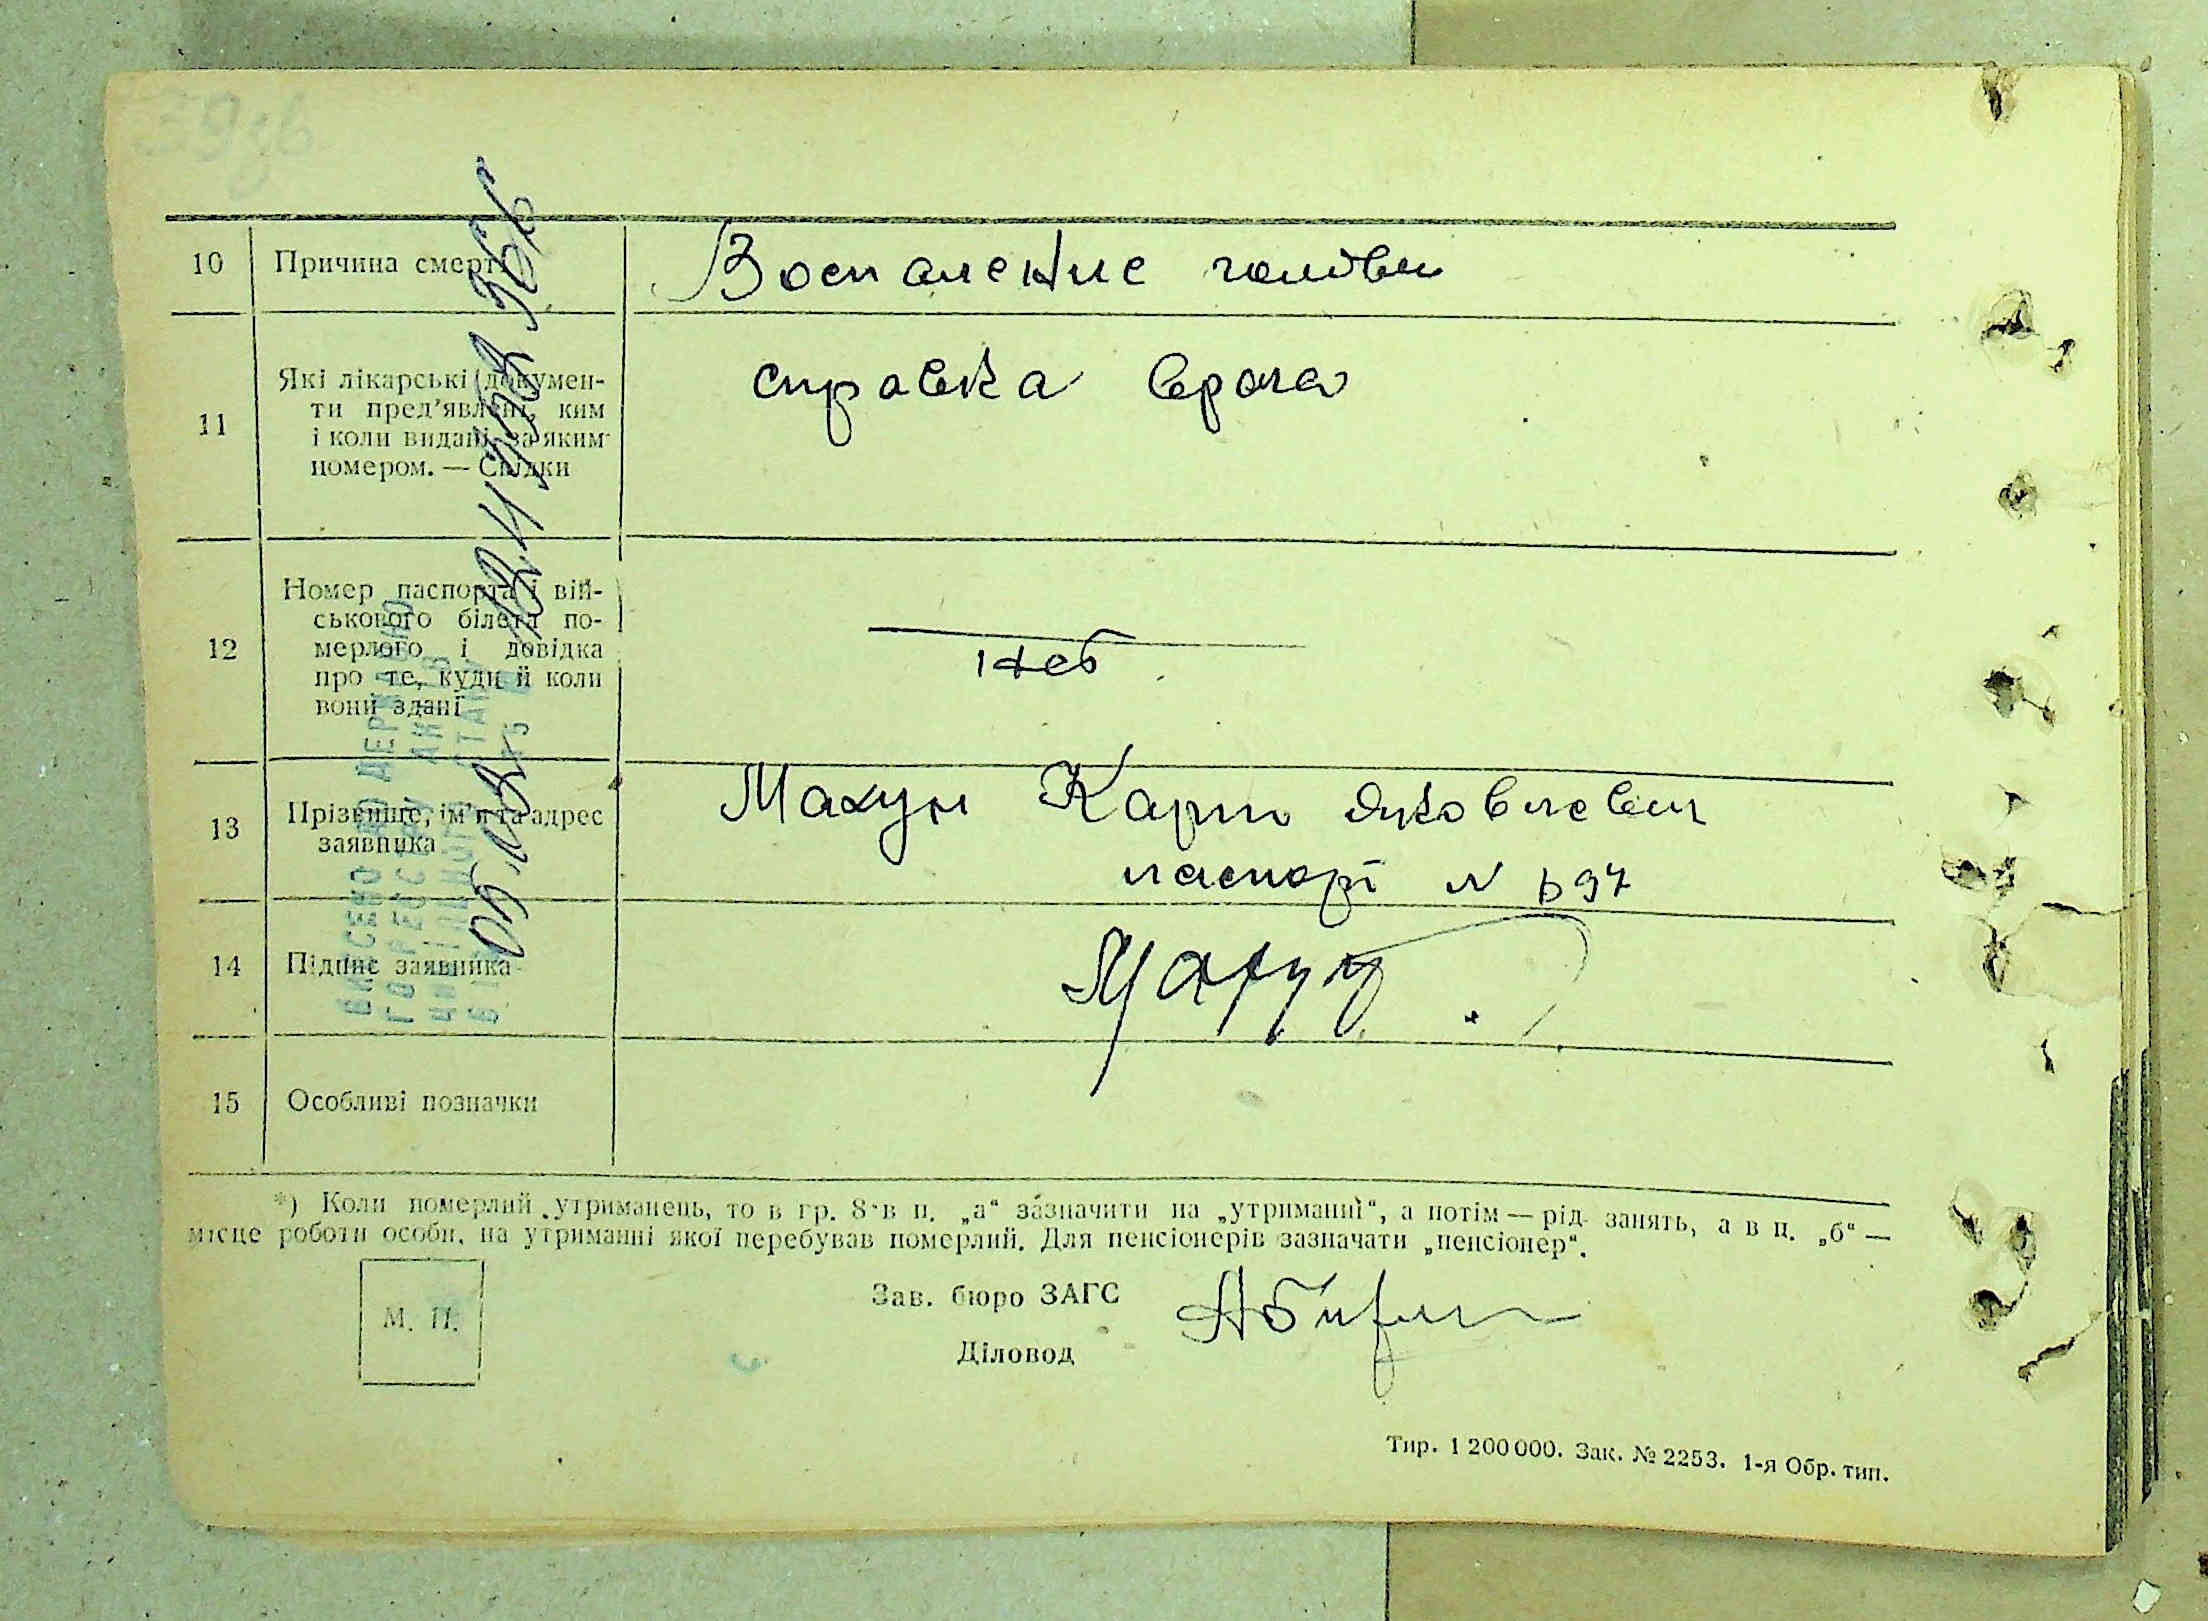 10 Причина смерті Воспаление головы
11 Які лікарські докумен-
ти пред'явлені, ким
і коли видані, за яким
номером. — Свідки
справка врача
12 Номер паспорта і вій-
ськового білета по-
мерлого і довідка
про те, куди й коли
вони здані
нет
13 Прізвище, ім'я та адрес
заявника
Махун Карп Яковлевич
паспорт N 697
14 Підпис заявника Махун
15 Особливі позначки
*) Коли померлий утриманець, то в гр. 8 в п. „а“ зазначити на „утриманні“, а потім — рід занять, а в п. „б“ —
місце роботи особи, на утриманні якої перебував померлий. Для пенсіонерів зазначати „пенсіонер“.
М. П.
Зав. бюро ЗАГС
Діловод
Тир. 1 200 000. Зак. № 2253. 1-я Обр. тип.